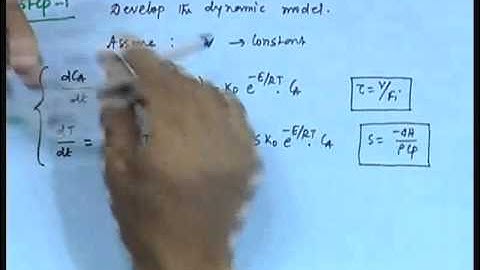 Step-1 Develop the dynamic model.
Assume : V → Constant
dCA/dt ) K0 e^-E/RT. CA τ = V/Fi
dT/dt = S K0 e^-E/RT. CA S = -ΔH/ρCp